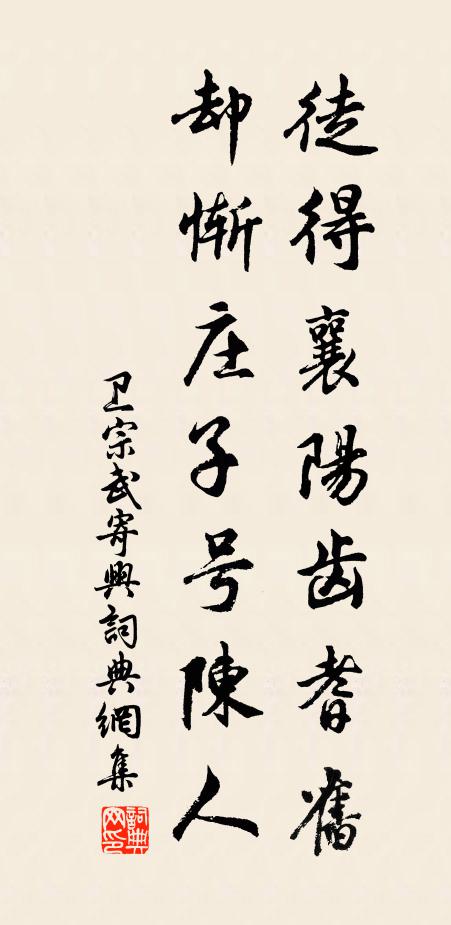 徒得襄陽齿耆舊
却惭庄子号陳人
卫宗武寄興詞典網集
詞典网印